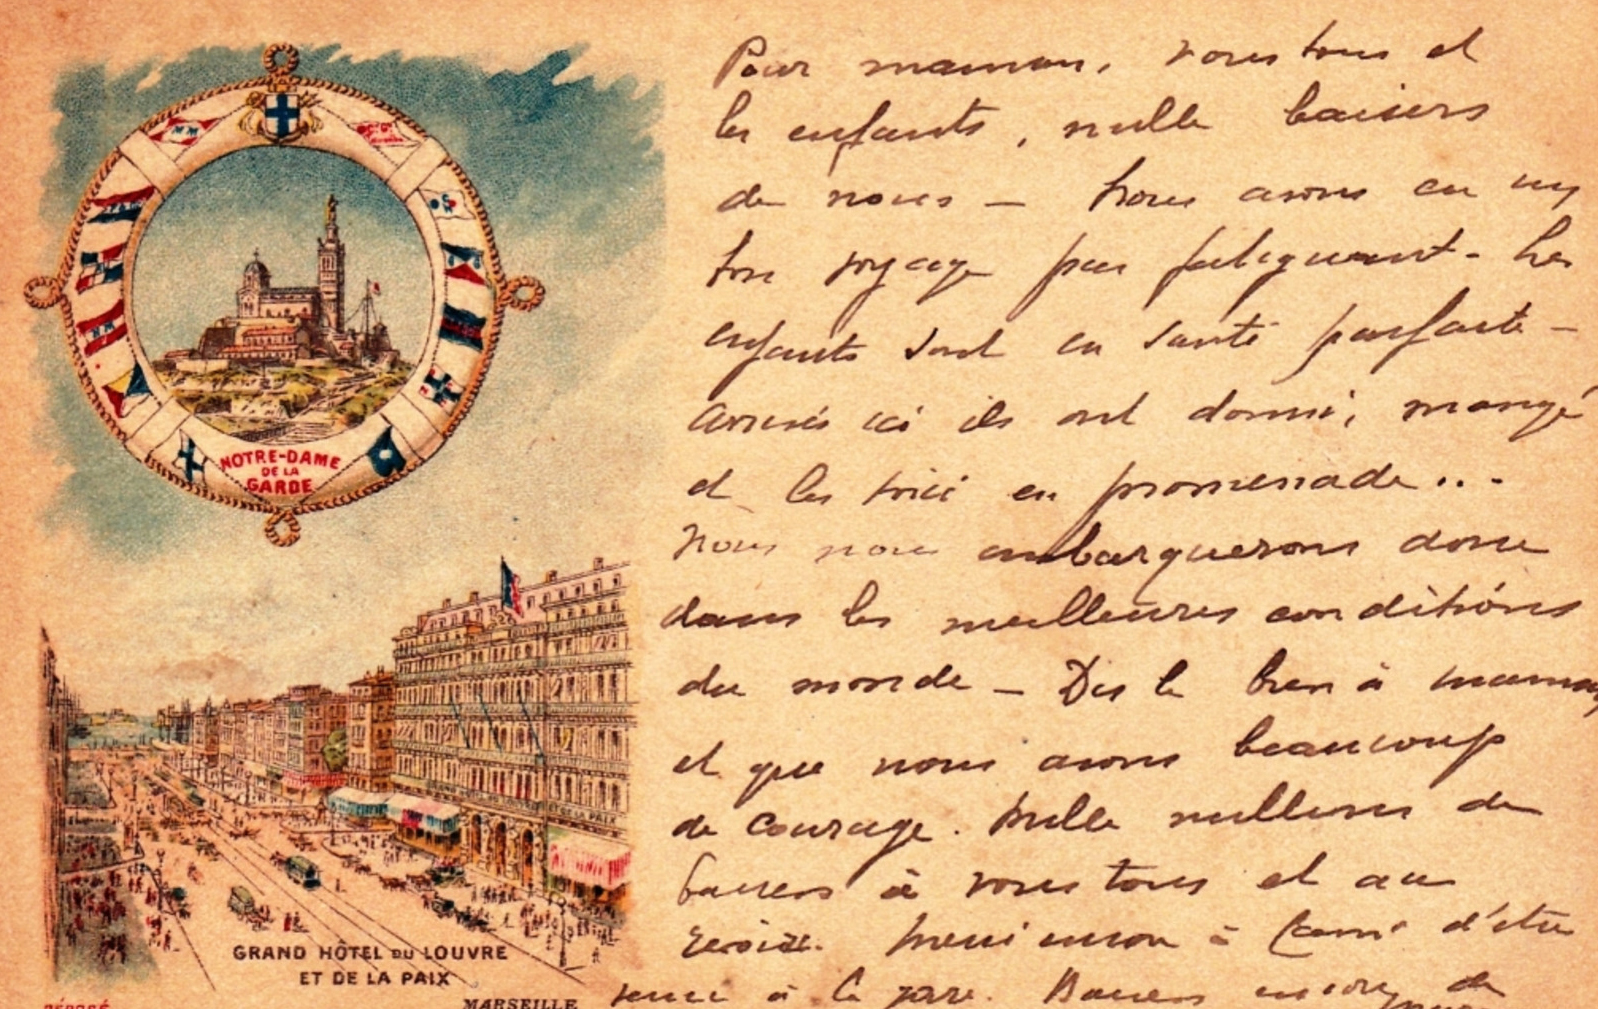 NOTRE-DAME
DE LA
GARDE
GRAND HÔTEL DU LOUVRE
ET DE LA PAIX
DÉPOSÉ
MARSEILLE
Pour maman, vous tous et
les enfants, mille baisers
de nous — Nous avons eu un
bon voyage pas fatiguant - Les
enfants sont en santé parfaite —
Arrivés ici ils ont dormi, mangé
et les voici en promenade...
Nous nous embarquerons donc
dans les meilleures conditions
du monde — Dis le bien à maman
et que nous avons beaucoup
de courage. Mille millions de
baisers à vous tous et au
revoir. Merci encore à d'être
venu à la gare. Baisers encore de